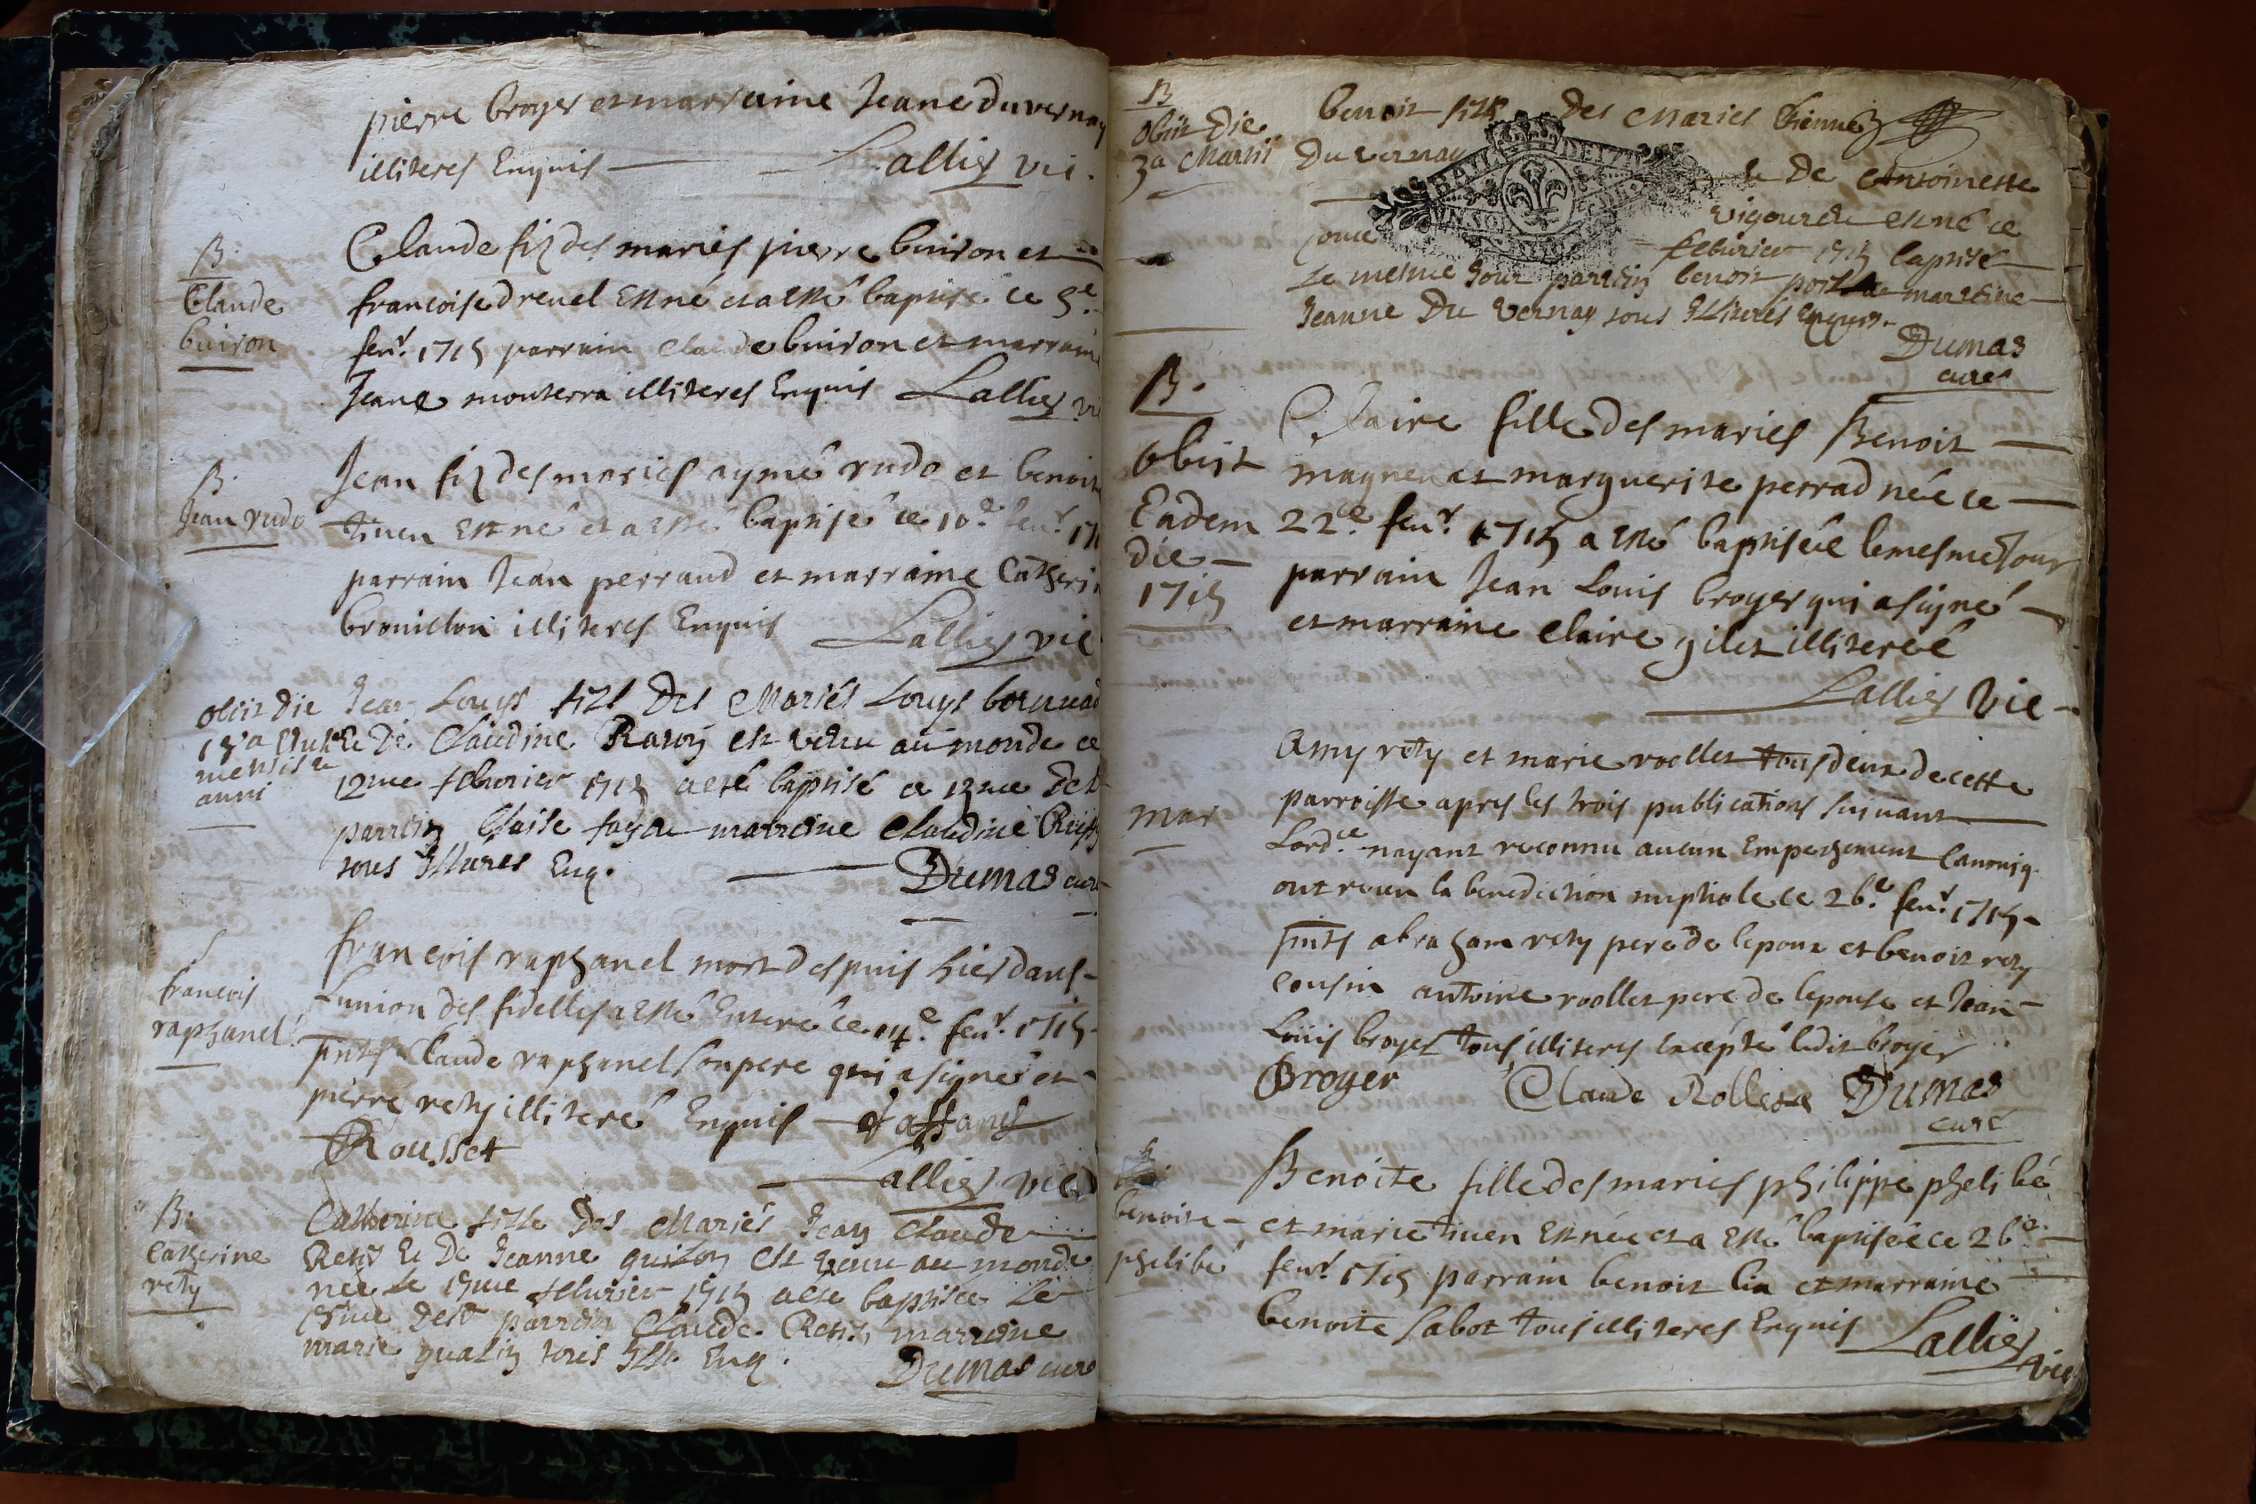 pierre broyer et marraine Jeane duvernay
illiteres Enquis Lallier vic.
B.
Claude
buiron
Claude fiz des mariés pierre buiron et
francoise drevel Est né et a esté baptisé ce 5e
fevr. 1715 parrain Claude buiron et marraine
Jeane monterra illiteres Enquis Lallier vi
B.
Jean rudo
Jean fiz des mariés aymé rudo et benoite
tiven Est né et a esté baptisé ce 10e fevr. 171
parrain Jean perraud et marraine Catheri
brouillon illiteres Enquis Lallier vic
obiit die
mensis
anni
Jean Louys fils Des Mariés Louys
Et De Claudine est venu au monde ce
12me febvrier 1715 a esté baptisé ce 13me
parrein Claude marreine Claudine
tous Illitres Enq. Dumas curé
francois
raphanel
francois raphanel mort despuis hier dans
Lunion des fidelles a esté Enterré ce 14e fevr. 1715
pnts Claude raphanel son pere qui a signé et
pierre rety illiteré Enquis
Rousset
Lallier vic
B.
Catherine
rety
Catherine fille Des Mariés Jean Claude
Rety Et De Jeanne est venue au monde
née Le 15me febvrier 1715 a esté baptisée Le
parrein Claude Rety, marreine
marie tous Ill. Enq. Dumas curé
B
obiit die
3a Martii
benoit fils Des Mariés Etienne
Du vernay
Et De Antoinette
est né ce
febvrier 1715 baptisé
Le mesme Jour parrein benoit marreine
Jeanne Du Vernay tous Illitrés Enquis.
Dumas
curé
B.
obiit
Eadem
die
1715
Claire fille des mariés Benoit
magnen et marguerite perrad née ce
22e fevr. 1715 a esté baptisée le mesme Jour
parrain Jean Louis broyer qui a signé
et marraine Claire gilet illiterée
Lallier Vic
mar
Amy rety et marie rollet tous deux de cette
parroisse apres les trois publications suivant
Lordce nayant reconnu aucun Empechement Canoniq.
ont receu la benediction nuptiale ce 26e fevr. 1715
pnts abraham rety pere de lepoux et benoit rety
cousin antoine rollet pere de lepouse et Jean
Louis broyer tous illiteres excepté ledit broyer
Broyer Claude Rollet Dumas
curé
benoite
phelibé
Benoite fille des mariés philippe phelibé
et marie tiven Est née et a esté baptisée ce 26e
fevr. 1715 parrain benoit lia et marraine
benoite sabot tous illiteres Enquis Lallier
vic